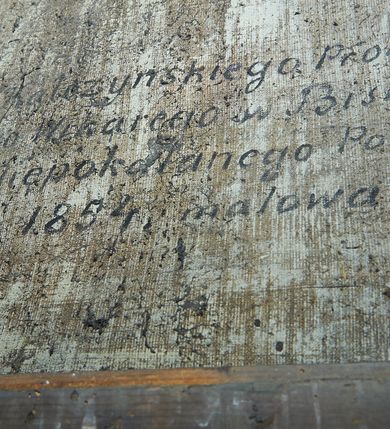 kalczyńskiego Pro
o Makarego w Bis
Niepokalanego Po
1854, malowa